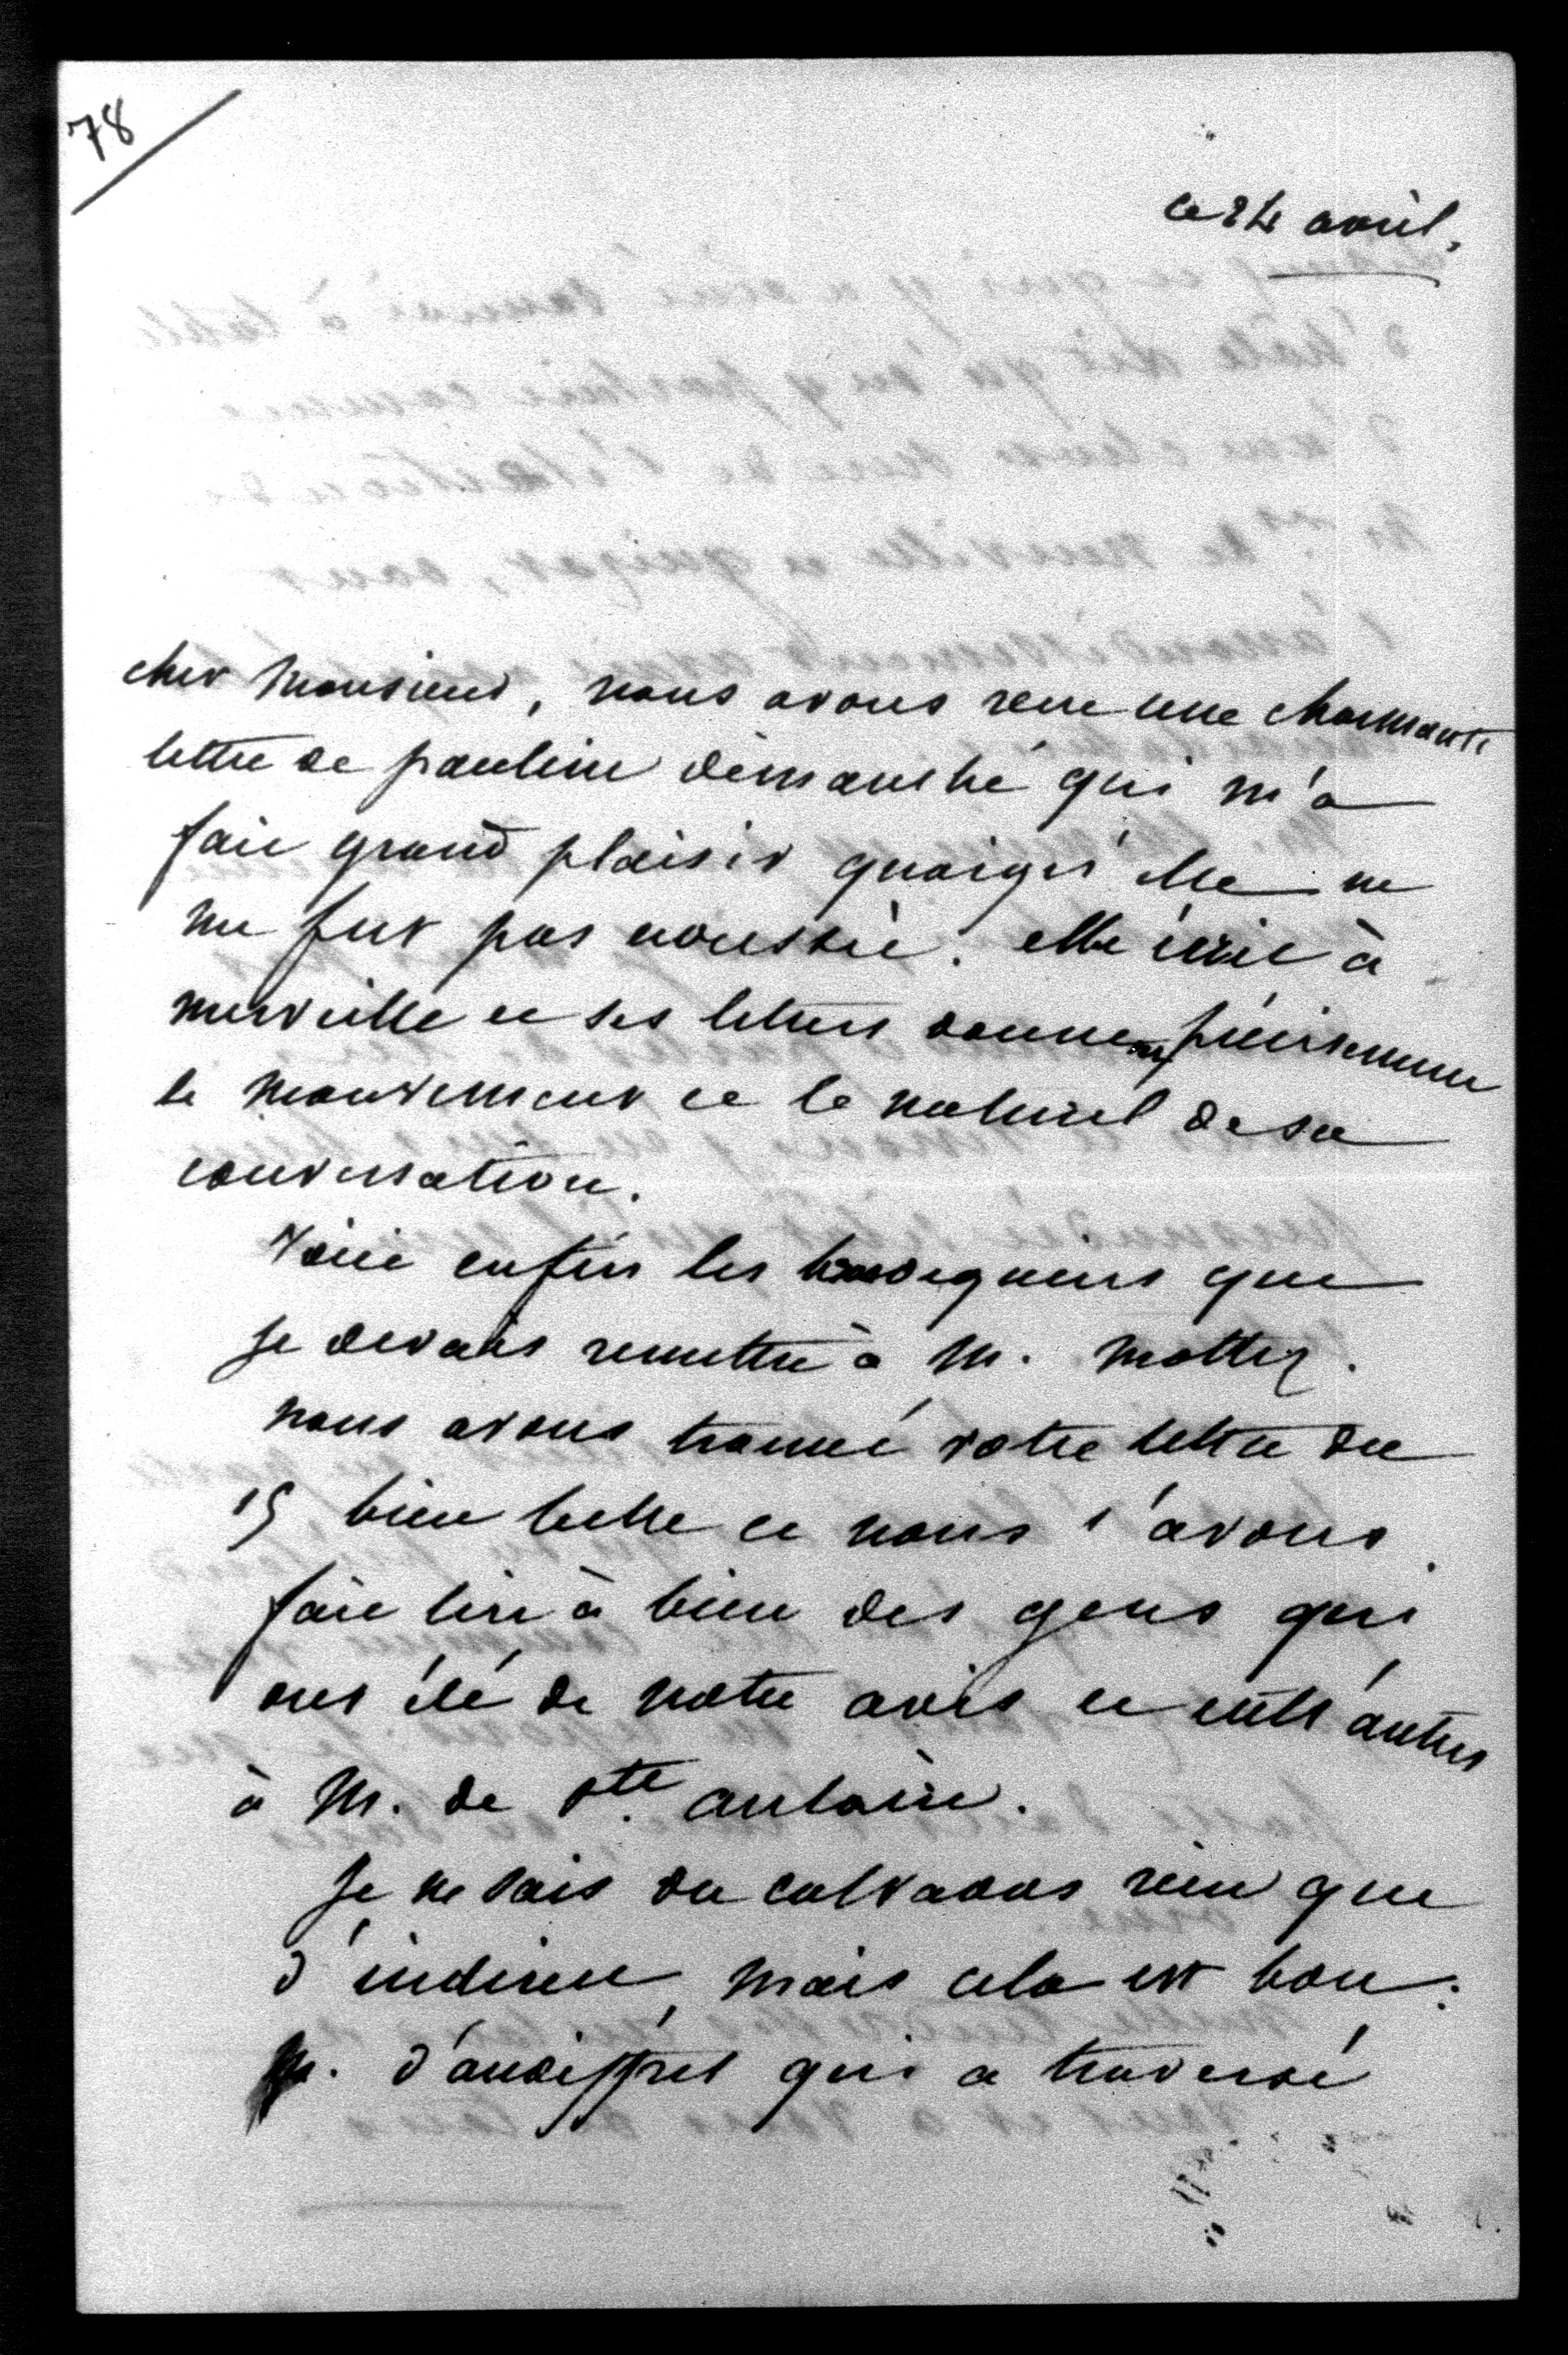 78
ce 24 avril,
cher Monsieur, nous avons reçu une charmante
lettre de pauline dimanche qui m'a
fait grand plaisir quoiqu'elle ne
me fut pas adressée. elle écrit à
merveille et ses lettres donnent précisément
le mouvement et le naturel de sa
conversation.
Voici enfin les que
je devais remettre à M. Mottez.
nous avons trouvé votre lettre du
15 bien belle et nous l'avons
fait lire à bien des gens qui
ont été de notre avis et entr'autres
à M. de Ste aulaire.
Je ne sais du calvados rien que
d'indirect, mais cela est bon :
M. d'audiffret qui a traversé